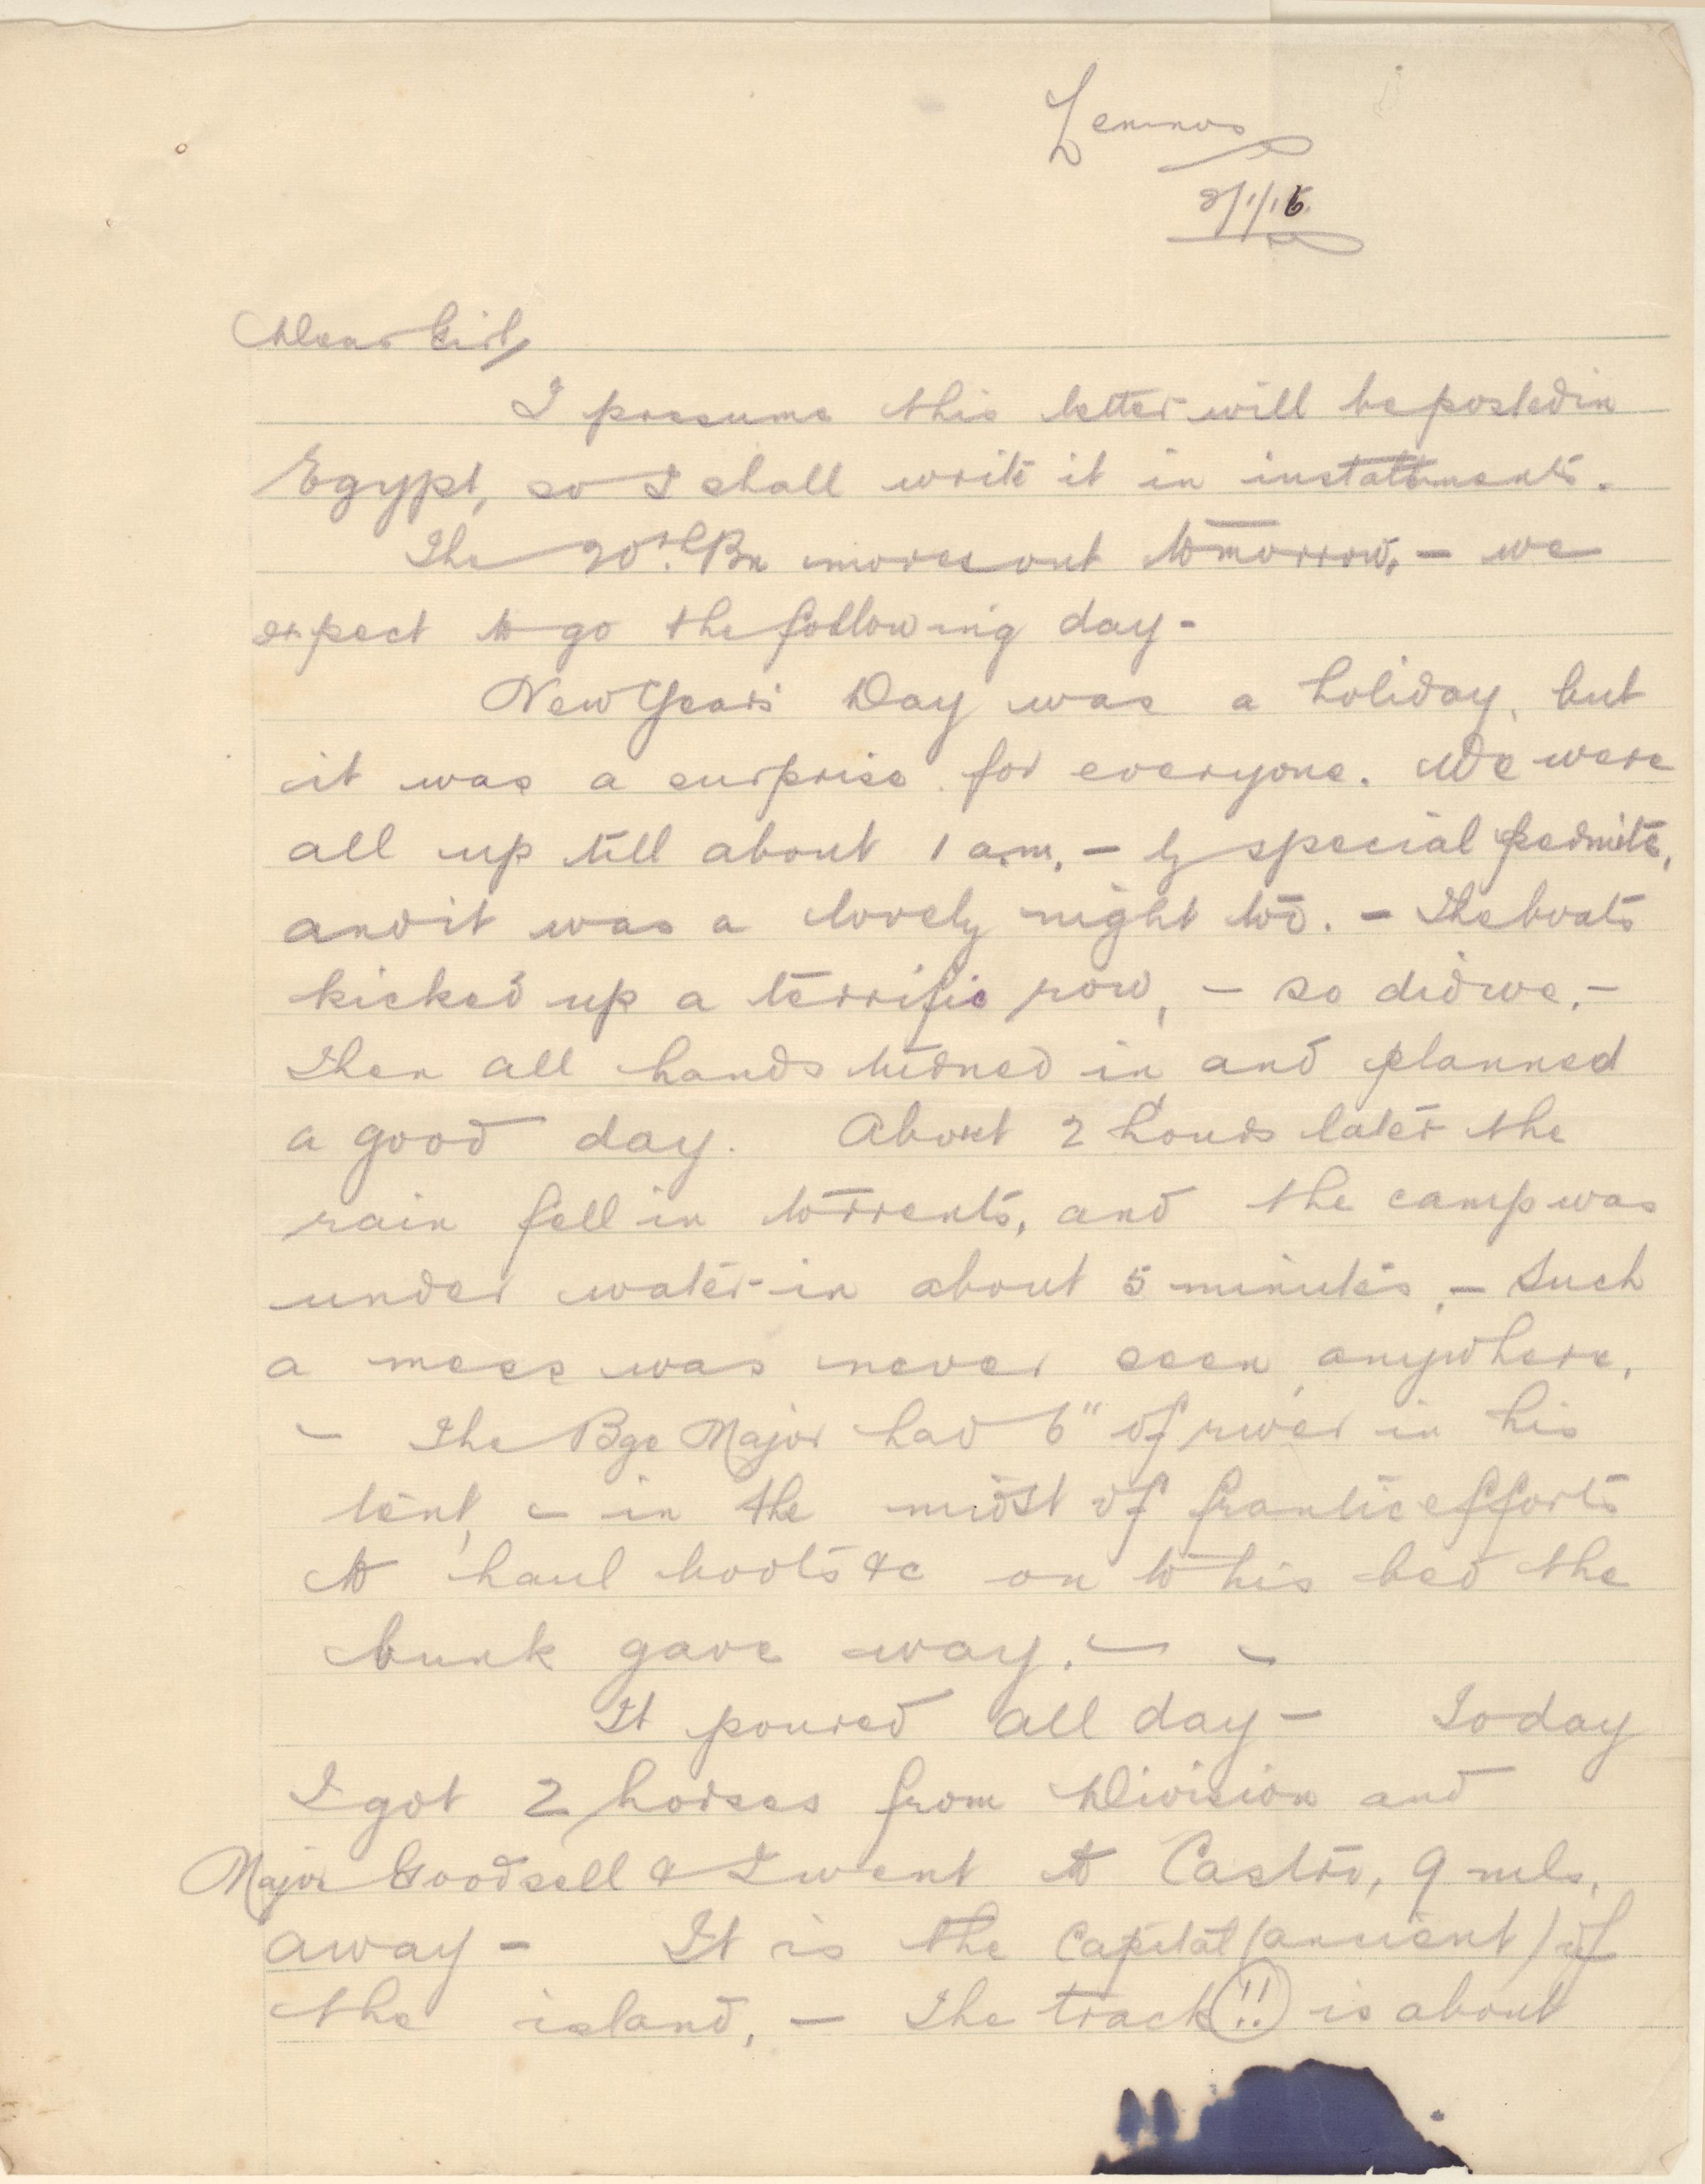 Lemnos
2/1/16
Dear Girl,
I presume this letter will be posted in
Egypt, so I shall write it in instalments.
The 20th. Bn moves out tomorrow, - we
expect to go the following day -
New Year's Day was a holiday, but
it was a surprise for everyone. We were
all up till about 1 a.m. - by special permits,
and it was a lovely night too. - The boats
kicked up a terrific row, - so did we. -
Then all hands turned in and planned
a good day. About 2 hours later the
rain fell in torrents, and the camp was
under water in about 5 minutes, - Such
a mess was never seen anywhere.
- The Bge Major had 6" of river in his
tent, - in the midst of frantic efforts
to haul boots &c on to his bed the
bunk gave way. - -
It poured all day - Today
I got 2 horses from Division and
Major Goodsell & I went to Castro, 9 mls.
away - It is the Capital (ancient) of
the island, - The track (!!) is about